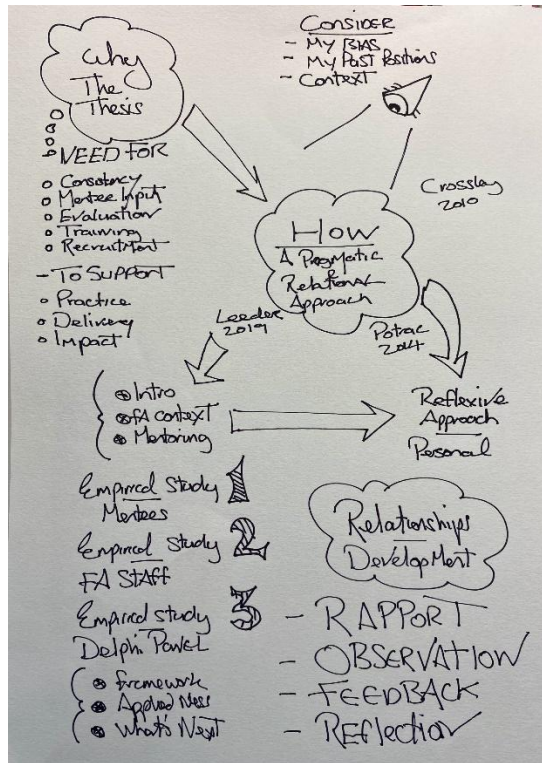 Why
The
Thesis
NEED FOR
Consistency
Mentee Input
Evaluation
Training
Recruitment
- To Support
Practice
Delivery
Impact
CONSIDER
- My BIAS
- My Past Positions
- Context
Crossley
2010
How
A Pragmatic
&
Relational
Approach
Leeder
2019
Potrac
2014
Intro
FA Context
Mentoring
Reflexive
Approach
Personal
Empirical Study 1
Mentees
Empirical Study 2
FA Staff
Empirical Study 3
Delphi Panel
Framework
Applied Ness
What's Next
Relationships
Development
- RAPPORT
- OBSERVATION
- FEEDBACK
- REFlection